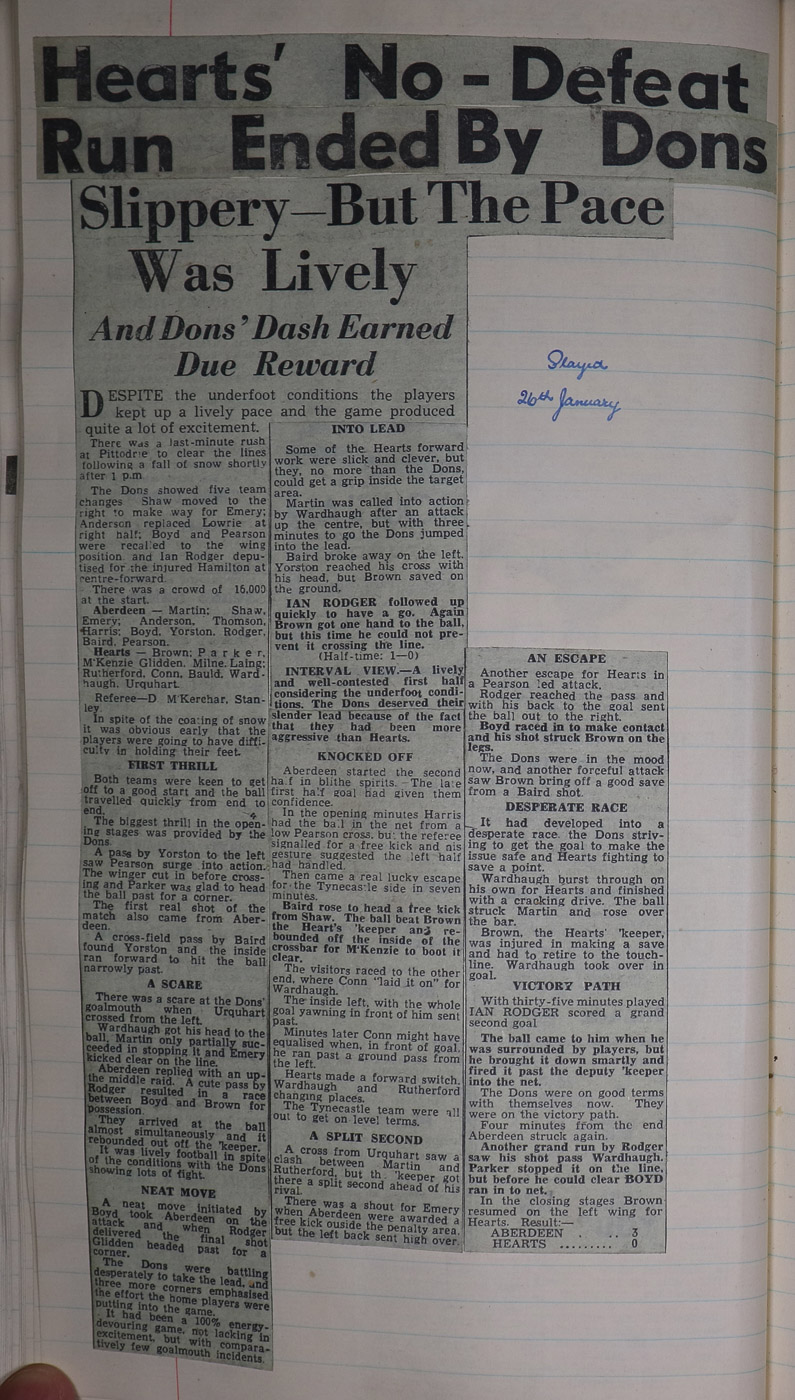 Hearts' No - Defeat
Run Ended By Dons
Slippery—But The Pace
Was Lively
And Dons' Dash Earned
Due Reward
DESPITE the underfoot conditions the players
kept up a lively pace and the game produced
quite a lot of excitement.
There was a last-minute rush
at Pittodrie to clear the lines
following a fall of snow shortly
after 1 p.m
The Dons showed five team
changes Shaw moved to the
right to make way for Emery;
Anderson replaced Lowrie at
right half; Boyd and Pearson
were recalled to the wing
position and Ian Rodger depu-
tised for the injured Hamilton at
centre-forward.
There was a crowd of 15,000
at the start.
Aberdeen — Martin; Shaw,
Emery; Anderson, Thomson,
Harris; Boyd, Yorston, Rodger,
Baird, Pearson.
Hearts — Brown; Parker,
M'Kenzie Glidden, Milne, Laing;
Rutherford, Conn, Bauld, Ward-
haugh, Urquhart.
Referee—D M'Kerchar, Stan-
ley
In spite of the coating of snow
it was obvious early that the
players were going to have diffi-
culty in holding their feet.
FIRST THRILL
Both teams were keen to get
off to a good start and the ball
travelled quickly from end to
end.
The biggest thrill in the open-
ing stages was provided by the
Dons.
A pass by Yorston to the left
saw Pearson surge into action.
The winger cut in before cross-
ing and Parker was glad to head
the ball past for a corner.
The first real shot of the
match also came from Aber-
deen.
A cross-field pass by Baird
found Yorston and the inside
ran forward to hit the ball
narrowly past.
A SCARE
There was a scare at the Dons'
goalmouth when Urquhart
crossed from the left.
Wardhaugh got his head to the
ball, Martin only partially suc-
ceeded in stopping it and Emery
kicked clear on the line.
Aberdeen replied with an up-
the middle raid. A cute pass by
Rodger resulted in a race
between Boyd and Brown for
possession.
They arrived at the ball
almost simultaneously and it
rebounded out off the 'keeper.
It was lively football in spite
of the conditions with the Dons
showing lots of fight.
NEAT MOVE
A neat move initiated by
Boyd took Aberdeen on the
attack and when Rodger
delivered the final shot
Glidden headed past for a
corner.
The Dons were battling
desperately to take the lead, and
three more corners emphasised
the effort the home players were
putting into the game.
It had been a 100% energy-
devouring game, not lacking in
excitement, but with compara-
tively few goalmouth incidents.
INTO LEAD
Some of the Hearts forward
work were slick and clever, but
they, no more than the Dons,
could get a grip inside the target
area.
Martin was called into action
by Wardhaugh after an attack
up the centre, but with three
minutes to go the Dons jumped
into the lead.
Baird broke away on the left.
Yorston reached his cross with
his head, but Brown saved on
the ground.
IAN RODGER followed up
quickly to have a go. Again
Brown got one hand to the ball,
but this time he could not pre-
vent it crossing the line.
(Half-time: 1—0)
INTERVAL VIEW.—A lively
and well-contested first half
considering the underfoot condi-
tions. The Dons deserved their
slender lead because of the fact
that they had been more
aggressive than Hearts.
KNOCKED OFF
Aberdeen started the second
half in blithe spirits. The late
first half goal had given them
confidence.
In the opening minutes Harris
had the ball in the net from a
low Pearson cross, but the referee
signalled for a free kick and his
gesture suggested the left half
had handled.
Then came a real lucky escape
for the Tynecastle side in seven
minutes.
Baird rose to head a free kick
from Shaw. The ball beat Brown
the Heart's 'keeper and re-
bounded off the inside of the
crossbar for M'Kenzie to boot it
clear.
The visitors raced to the other
end, where Conn "laid it on" for
Wardhaugh.
The inside left, with the whole
goal yawning in front of him sent
past.
Minutes later Conn might have
equalised when, in front of goal,
he ran past a ground pass from
the left.
Hearts made a forward switch,
Wardhaugh and Rutherford
changing places.
The Tynecastle team were all
out to get on level terms.
A SPLIT SECOND
A cross from Urquhart saw a
clash between Martin and
Rutherford, but th 'keeper got
there a split second ahead of his
rival.
There was a shout for Emery
when Aberdeen were awarded a
free kick ouside the penalty area,
but the left back sent high over.
Played
26th January
AN ESCAPE
Another escape for Hearts in
a Pearson led attack.
Rodger reached the pass and
with his back to the goal sent
the ball out to the right.
Boyd raced in to make contact
and his shot struck Brown on the
legs.
The Dons were in the mood
now, and another forceful attack
saw Brown bring off a good save
from a Baird shot.
DESPERATE RACE
It had developed into a
desperate race, the Dons striv-
ing to get the goal to make the
issue safe and Hearts fighting to
save a point.
Wardhaugh burst through on
his own for Hearts and finished
with a cracking drive. The ball
struck Martin and rose over
the bar.
Brown, the Hearts' 'keeper,
was injured in making a save
and had to retire to the touch-
line. Wardhaugh took over in
goal.
VICTORY PATH
With thirty-five minutes played
IAN RODGER scored a grand
second goal
The ball came to him when he
was surrounded by players, but
he brought it down smartly and
fired it past the deputy 'keeper
into the net.
The Dons were on good terms
with themselves now. They
were on the victory path.
Four minutes from the end
Aberdeen struck again.
Another grand run by Rodger
saw his shot pass Wardhaugh.
Parker stopped it on the line,
but before he could clear BOYD
ran in to net.
In the closing stages Brown
resumed on the left wing for
Hearts. Result:—
ABERDEEN . .. 3
HEARTS ......... 0